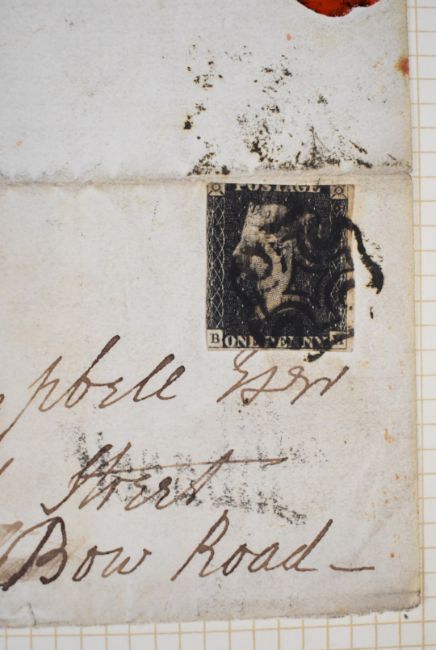 POSTAGE
B ONE PENNY
pbell Esqr
Street
Bow Road